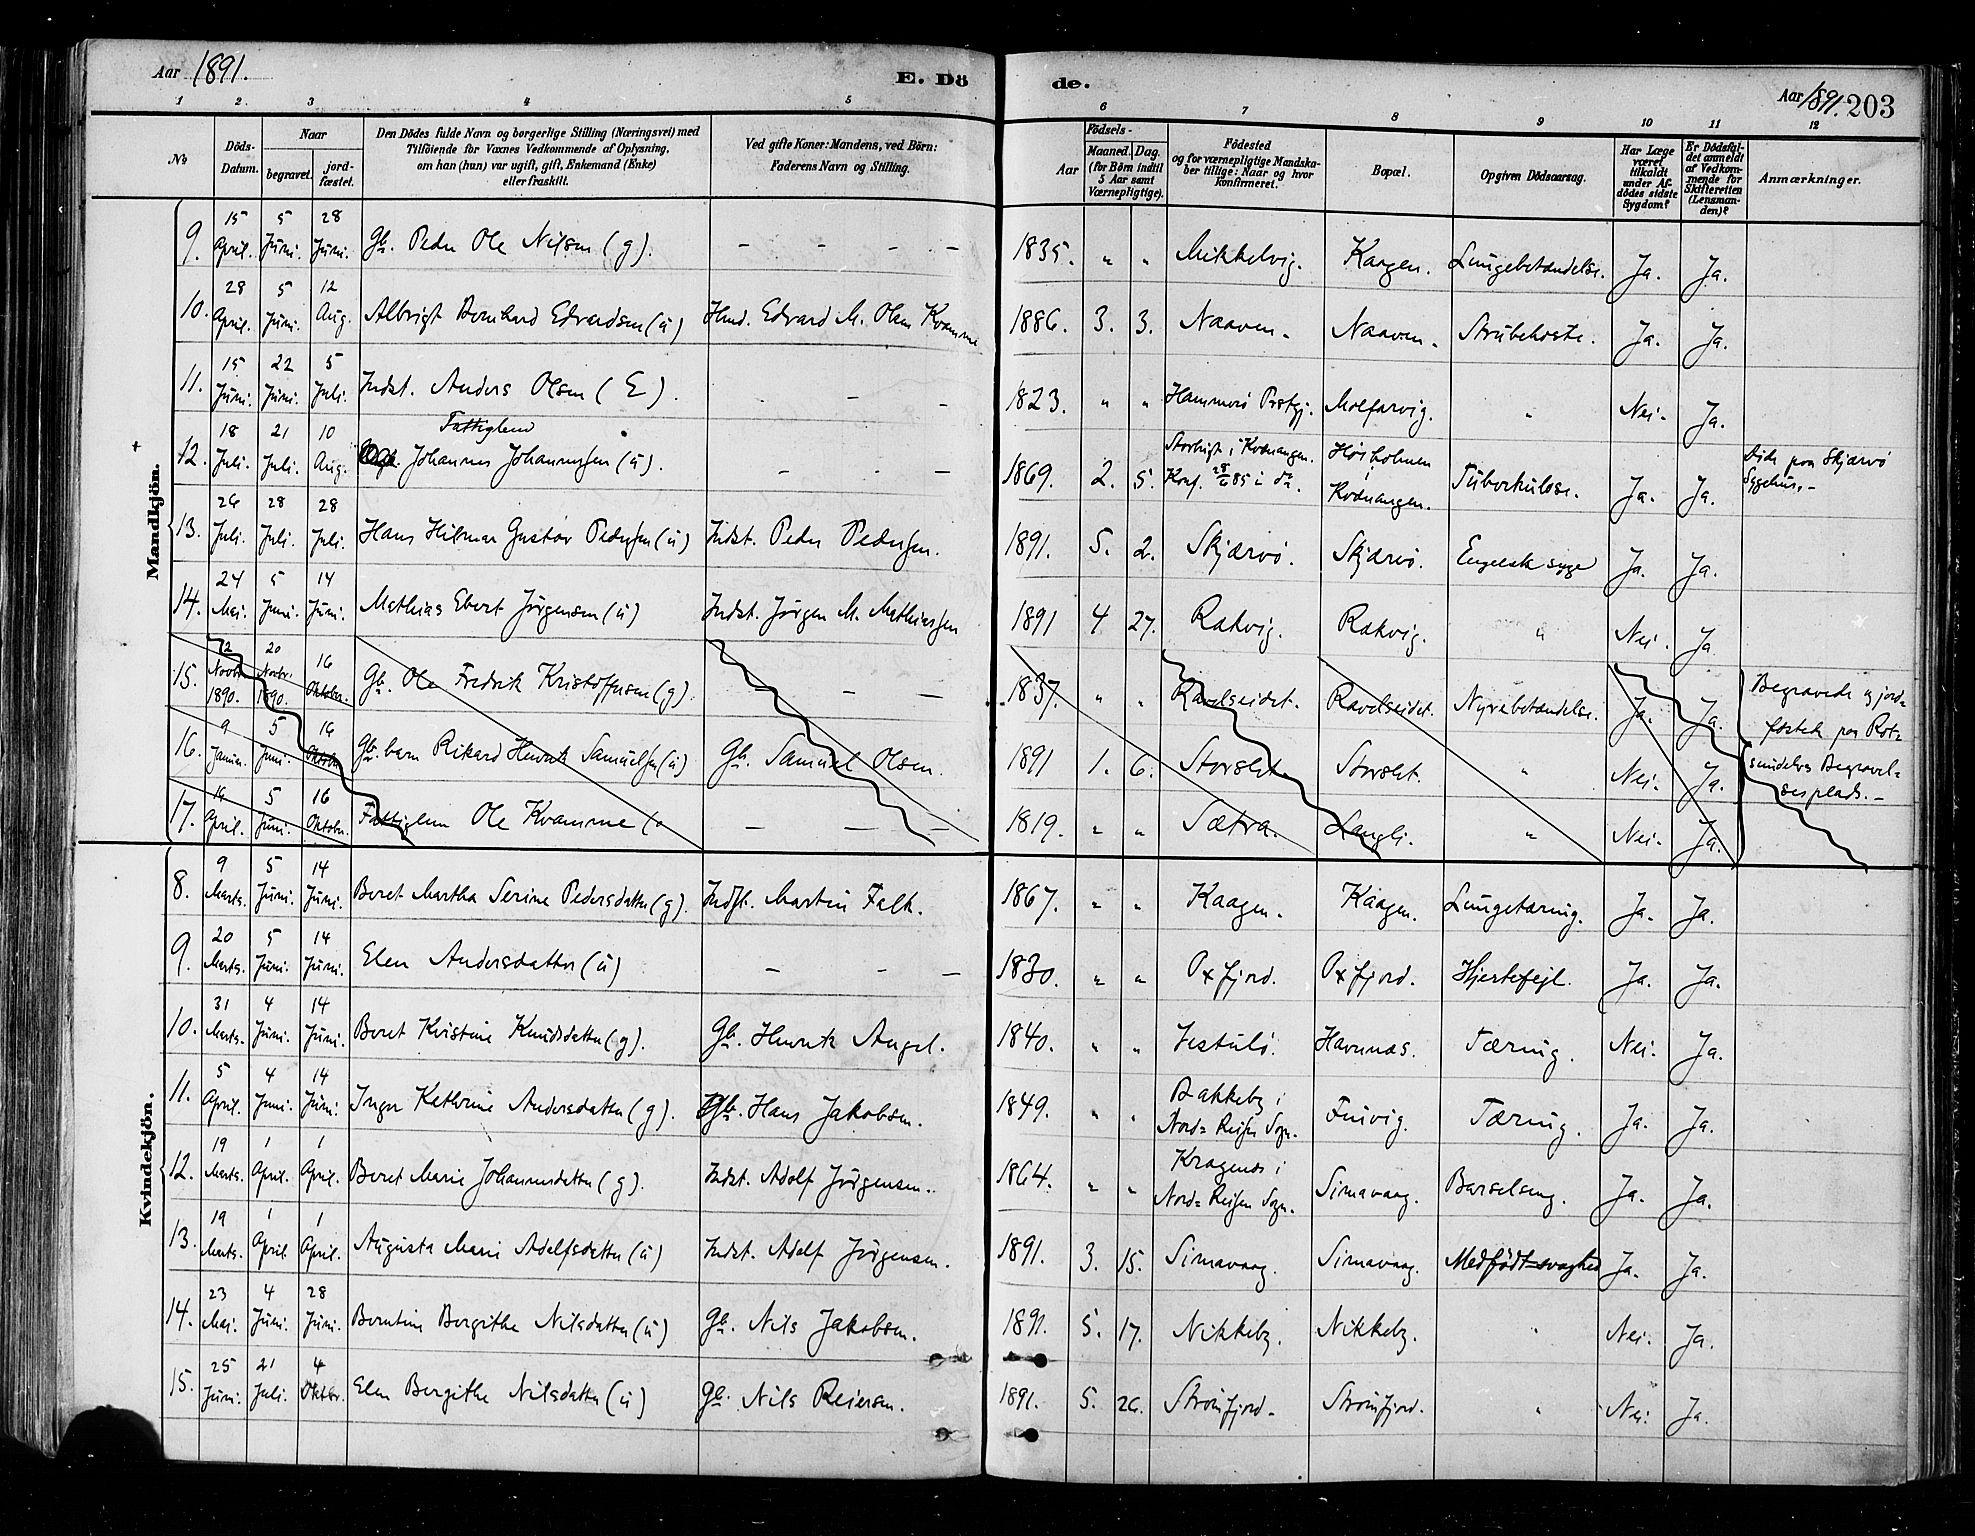 Aar 1891. E. Dö
de. Aar 1891. 203
1 2. 3 4 5 6 7 8 9 10 11 12
No Döds-Datum. Naar begravet. jordfæstet. Den Dödes fulde Navn og borgerlige Stilling (Næringsvei) med Tilföiende for Voxnes Vedkommende af Oplysning, om han (hun) var ugift, gift, Enkemand (Enke) eller fraskilt. Ved gifte Koner: Mandens, ved Börn: Faderens Navn og Stilling. Födsels- Aar Maaned. Dag. (for Börn indtil 5 Aar samt Værnepligtige). Födested og for værnepligtige Mandskaber tillige: Naar og hvor konfirmeret. Bopæl. Opgiven Dödsaarsag. Har Læge været tilkaldt under Afdödes sidste Sygdom? Er Dödsfaldet anmeldt af Vedkommende for Skifteretten (Lensmanden)? Anmærkninger.
Mandkjön.
9. 15 April. 5 Juni. 28 Juni. Gb. Peder Ole Nilsen (g). – – – – 1835. " " Mikkelvig. Kaagen. Lungebetændelse. Ja. Ja.
10. 28 April. 5 Juni. 12 Aug. Albrigt Bernhard Edvardsen (u) Hmd. Edvard M. Olsen Kvamme 1886. 3. 3. Naaven. Naaven. Strubehoste. Ja. Ja.
11. 15 Juni. 22 Juni. 5 Juli. Indst. Anders Olsen (E). – – – 1823. " " Hammerö Prstgj. Molfarvig. " Nei. Ja.
12. 18 Juli. 21 Juli. 10 Aug. Fattiglem Johannes Johannessen (u). – – – 1869. 2. 5. Storbugt i Kvænangen. Konf. 28/6 85 i do. Hösholmen Kvænangen. Tuberkulose. Ja. Ja. Döde paa Skjærvö Sygehus.
13. 26 Juli. 28 Juli. 28 Juli. Hans Hilmar Gustav Pedersen (u) Indst. Peder Pedersen. 1891. 5. 2. Skjærvö. Skjærvö. Engelsk syge Ja. Ja.
14. 24 Mai. 5 Juni. 14 Juni. Mathias Ebert Jörgensen (u) Indst. Jörgen M. Mathiassen 1891 4 27. Rakvig. Rakvig. " Nei. Ja
15. 12 Novbr. 1890. 20 Novbr. 1890. 16 Oktober. Gb. Ole Fredrik Kristoffersen (g). – – – 1837. " " Ravelseidet. Ravelseidet. Nyrebetændelse. Ja. Ja. Begravede og jord=
16. 9 Januar. 5 Juni. 16 Oktober Gb. barn Rikard Henrik Samuelsen (u) Gb. Samuel Olsen. 1891 1. 6. Storslet. Storslet. " Nei. Ja. fæstede paa Rot=
sundelvs Begravel=
sesplads.
17. 14 April. 5 Juni. 16 Oktobr. Fattiglem Ole Kvamme – – – 1819. " " Sætra. Langli. " Nei. Ja.
Kvindekjön.
8. 9 Marts. 5 Juni. 14 Juni. Beret Martha Serine Pedersdatter (g). Indst. Martin Falk. 1867. " " Kaagen. Kaagen. Lungetæring. Ja. Ja.
9. 20 Marts. 5 Juni. 14 Juni. Elen Andersdatter (u) – – – 1830. " " Oxfjord. Oxfjord. Hjertefejl. Ja. Ja.
10. 31 Marts. 4 Juni. 14 Juni. Beret Kristine Knudsdatter (g). Gb. Henrik Angel. 1840. " " Havnnæs. Tæring. Nei. Ja.
11. 5 April. 4 Juni. 14 Juni. Inger Kathrine Andersdatter (g). Gb. Hans Jakobsen. 1849. " " Bakkeby i Nord=Reisen Sogn. Tæring. Ja. Ja.
12. 19 Marts. 1 April. 1 April. Beret Marie Johannesdatter (g). Indst. Adolf Jörgensen. 1864. " " Kragenæs i Nord=Reisen Sogn. Simavaag. Barselseng. Ja. Ja.
13. 19 Marts. 1 April. 1 April. Augusta Marie Adolfsdatter (u) Indst. Adolf Jörgensen. 1891. 3. 15. Simavaag. Simavaag. Medfödt svaghed Ja. Ja.
14. 23 Mai. 4 Juni. 28 Juni. Berntine Bergithe Nilsdatter (u) Gb. Nils Jakobsen. 1891. 5. 17. Nikkeby. Nikkeby. " Nei. Ja.
15. 25 Juni. 21 Juli. 4 Oktbr. Elen Bergithe Nilsdatter (u) Gb. Nils Reiersen. 1891. 5. 26. Strömfjord. Strömfjord. " Nei. Ja.